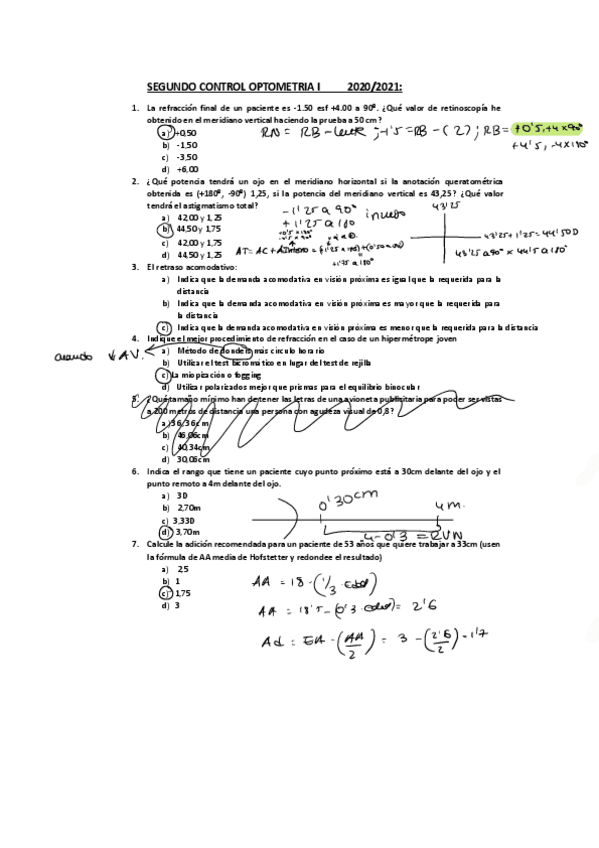 SEGUNDO CONTROL OPTOMETRIA I 2020/2021:
1. La refracción final de un paciente es -1.50 esf +4.00 a 90º. ¿Qué valor de retinoscopía he
obtenido en el meridiano vertical haciendo la prueba a 50 cm?
a) +0,50
RN = RB - ; -1'5 = RB - (2) ; RB = +0'5, +4 x 90º
b) -1,50
+4'5, -4 x 180º
c) -3,50
d) +6,00
2. ¿Qué potencia tendrá un ojo en el meridiano horizontal si la anotación queratométrica
obtenida es (+180º, -90º) 1,25, si la potencia del meridiano vertical es 43,25? ¿Qué valor
tendrá el astigmatismo total?
43'25
a) 42,00 y 1,25
-1'25 a 90º
+1'25 a 180
b) 44,50 y 1,75
43'25 + 1'25 = 44'50 D
c) 42,00 y 1,75
d) 44,50 y 1,25
43'25 a 90º x 44'5 a 180º
3. El retraso acomodativo:
a) Indica que la demanda acomodativa en visión próxima es igual que la requerida para la
distancia
b) Indica que la demanda acomodativa en visión próxima es mayor que la requerida para
la distancia
c) Indica que la demanda acomodativa en visión próxima es menor que la requerida para la distancia
4. Indique el mejor procedimiento de refracción en el caso de un hipermétrope joven
cuando ↓ A.V.
a) Método de donders más circulo horario
b) Utilizar el test bicromático en lugar del test de rejilla
c) La miopización o fogging
d) Utilizar polarizados mejor que prismas para el equilibrio binocular
5. ¿Qué tamaño mínimo han de tener las letras de una avioneta publicitaria para poder ser vistas
a 200 metros de distancia una persona con agudeza visual de 0,8?
a) 36,36cm
b) 46,06cm
c) 40,34cm
d) 30,06cm
6. Indica el rango que tiene un paciente cuyo punto próximo está a 30cm delante del ojo y el
punto remoto a 4m delante del ojo.
a) 3D
0'30cm
4m.
b) 2,70m
c) 3,33D
d) 3,70m
4 - 0'3 = RVN
7. Calcule la adición recomendada para un paciente de 53 años que quiere trabajar a 33cm (usen
la fórmula de AA media de Hofstetter y redondee el resultado)
a) 2.5
b) 1
AA = 18 - (1/3 · edad)
c) 1,75
d) 3
AA = 18'5 - (0'3 · edad) = 2'6
Ad = - (AA/2) = 3 - (2'6/2) = 1'7